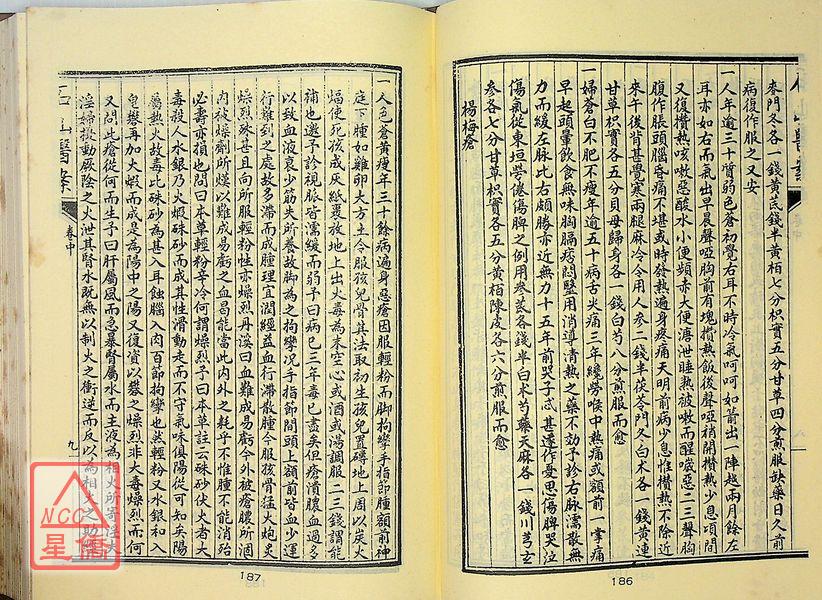 麥門冬各一錢黃芪錢半黃栢七分枳實五分甘草四分煎服缺藥日久前
病復作服之又安
一人年逾三十質弱色蒼初覺右耳不時冷氣呵呵如箭出一陣越兩月餘左
耳亦如右而氣出早晨聲啞胸前有塊攢熱飯後聲啞稍開攢熱少息頃間
又復攢熱咳嗽惡酸水小便頻赤大便溏泄睡熟被嗽而醒嘔惡二三聲胸
腹作脹頭腦昏痛不堪或時發熱遍身疼痛天明前病少息惟攢熱不除近
來午後背甚覺寒兩腿麻冷令用人參二錢半茯苓門冬白朮各一錢黃連
甘草枳實各五分貝母歸身各一錢白芍八分煎服而愈
一婦蒼白不肥不瘦年逾五十病舌尖痛三年纔勞喉中熱痛或額前一掌痛
早起頭暈飲食無味胸膈痞悶醫用消導清熱之藥不効予診右脉濡散無
力而緩左脉比右頗勝亦近無力十五年前哭子忒甚遂作憂思傷脾哭泣
傷氣從東垣勞倦傷脾之例用參芪各錢半白朮芍藥天麻各一錢川芎玄
參各七分甘草枳實各五分黃栢陳皮各六分煎服而愈
楊梅瘡
186
一人色蒼黃瘦年三十餘病遍身惡瘡因服輕粉而脚拘攣手指節腫額前神
庭下腫如雞卵大方士令服孩兒骨其法取初生孩兒置磚地上周以炭火
煏使死孩成灰紙裹放地上出火毒為末空心或酒或湯調服二三錢謂能
補也邀予診視脈皆濡緩而弱予曰病已三年毒已盡矣但瘡潰膿血過多
以致血液衰少筋失所養故脚為之拘攣况手指節間頭上額前皆血少運
行難到之處故多滯而成腫理宜潤經益血行滯散腫今服孩骨猛火炮炙
燥烈殊甚且向所服輕粉性亦燥烈丹溪曰血難成易虧今外被瘡膿所涸
内被燥劑所熯以難成易虧之血曷能當此内外之耗乎不惟腫不能消殆
必壽亦損也問曰本草輕粉辛冷何謂燥烈予曰本草註云硃砂伏火者大
毒殺人水銀乃火煆硃砂而成其性滑動走而不守氣味俱陽從可知矣陽
屬熱火故毒此硃砂為甚入耳蝕腦入肉百節拘攣也然輕粉又水銀和入
皂礬再加火煆而成是為陽中之陽又復資以礬之燥烈非大毒燥烈而何
又問此瘡從何而生予曰肝屬風而急暴腎屬水而主液為相火所寄淫夫
淫婦擻動厥陰之火泄其腎水既無以制火之衝逆而反以為相火之助
石山醫案
卷中
九
187
NCC
星僑